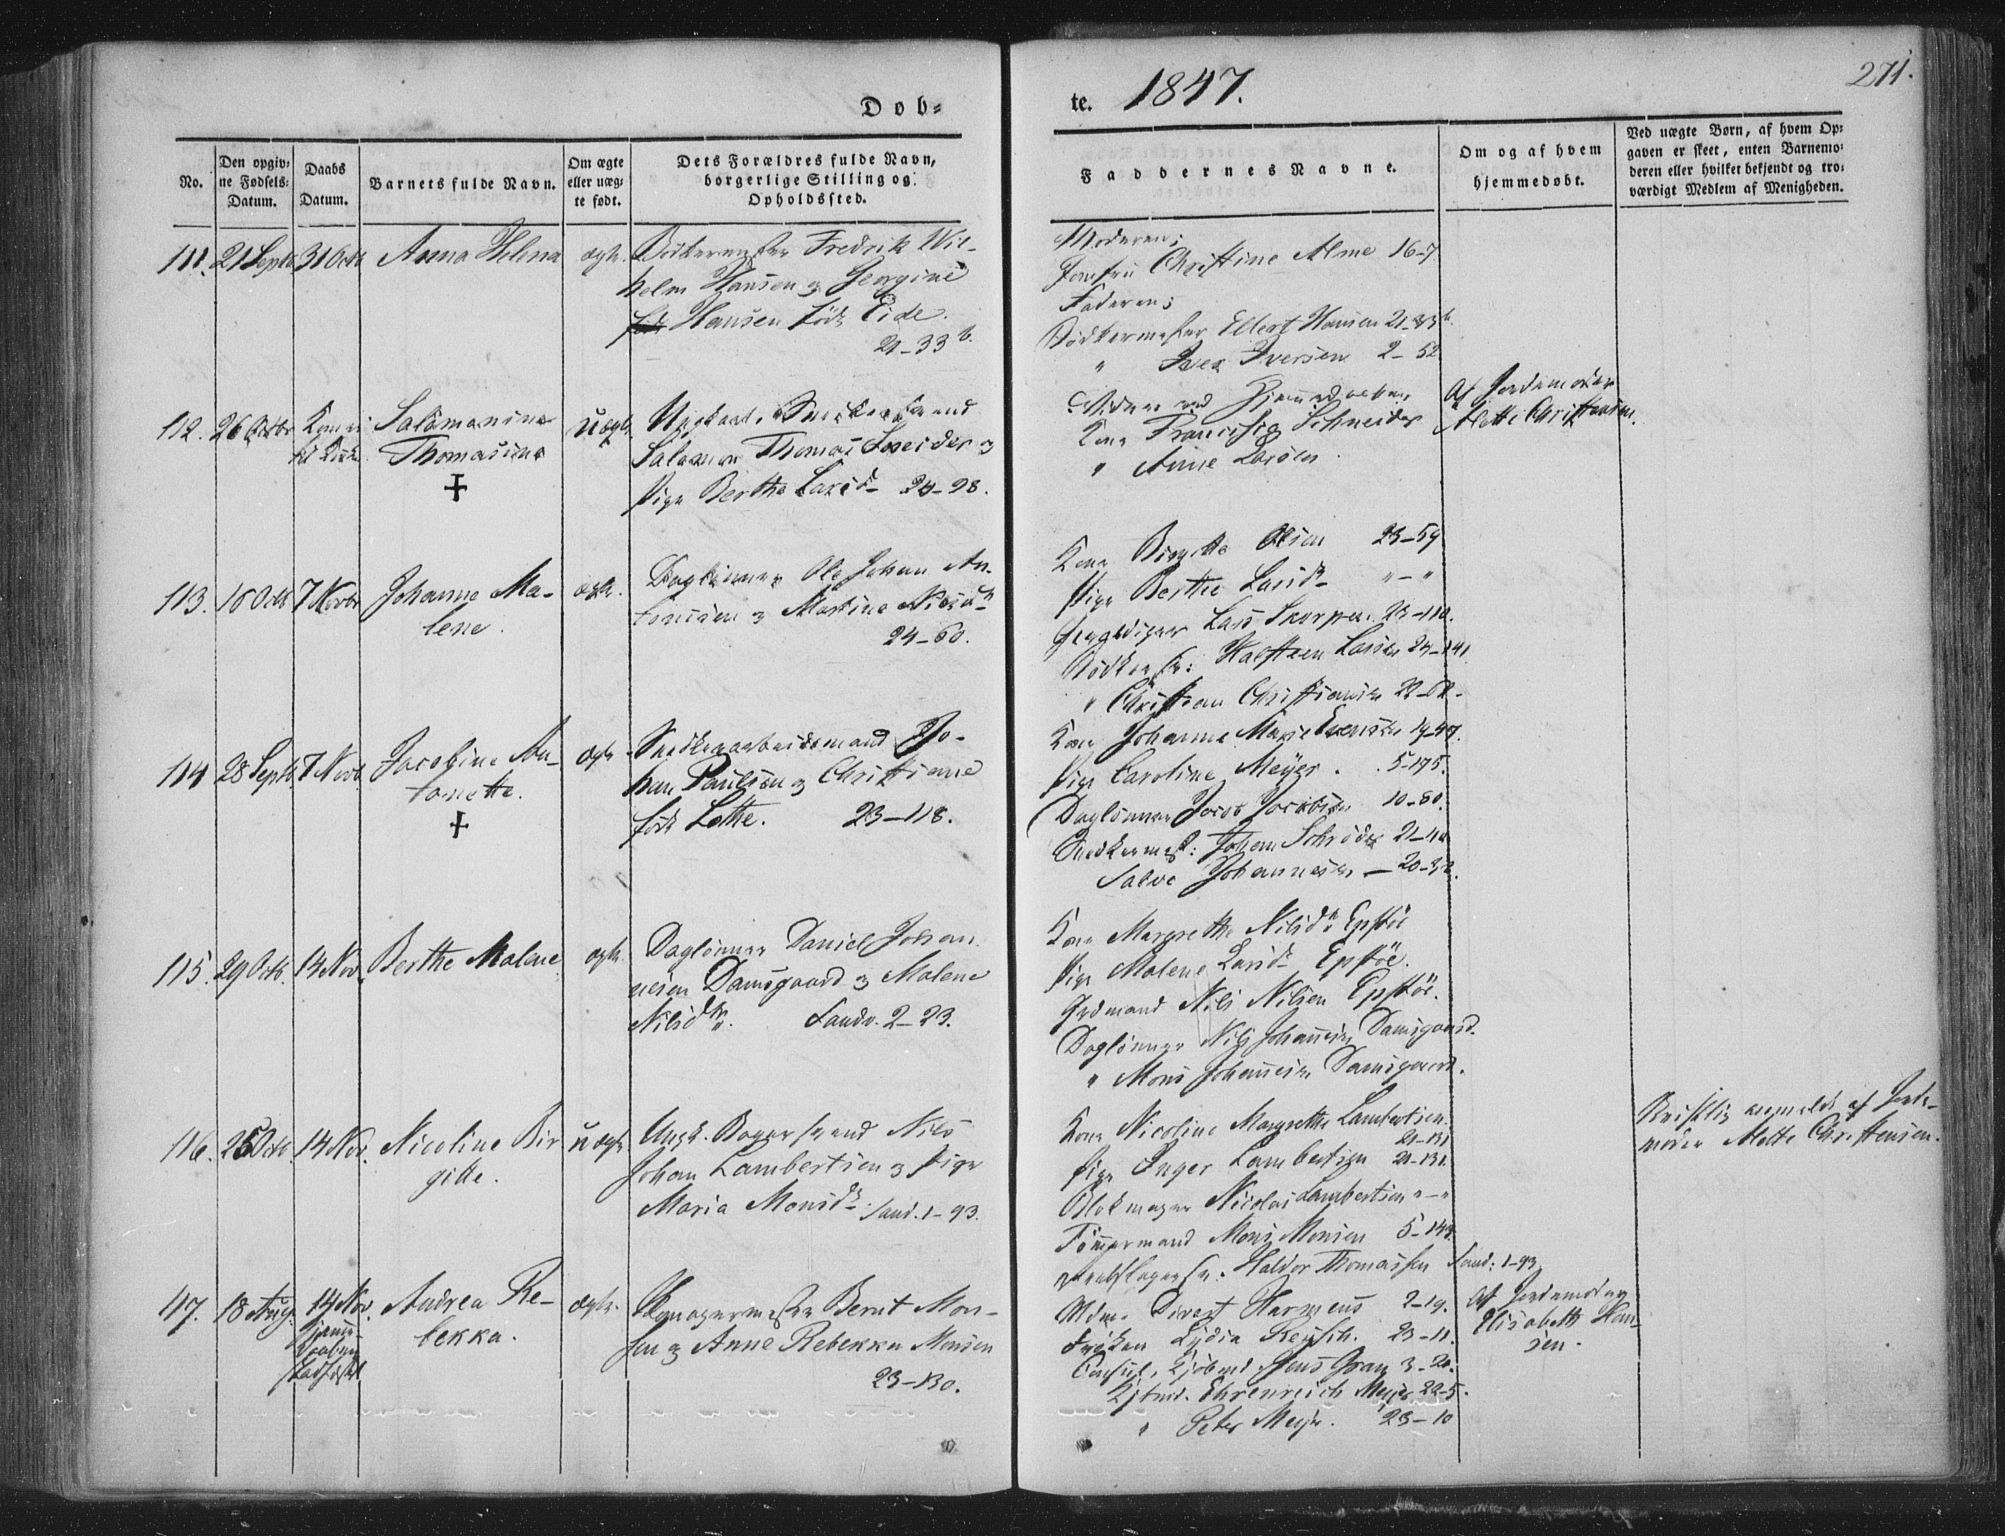 271.
Døb=
te. 1847.
No.
Den opgiv=
ne Fødsels=
Datum.
Daabs
Datum.
Barnets fulde Navn.
Om ægte
eller uæg=
te født.
Dets Forældres fulde Navn,
borgerlige Stilling og
Opholdssted.
Faddernes Navne.
Om og af hvem
hjemmedøbt.
Ved uægte Børn, af hvem Op=
gaven er skeet, enten Barnemo=
deren eller hvilket bekjendt og tro=
værdigt Medlem af Menigheden.
111. 21 Septr 31 Octb Anna Helena ægte.
Bødkermester Fredrik Wil-
helm Hansen og Georgine
Hansen født Eide.
21-33 b.
Moderen;
Jomfru Christine Alme 16-7
Faderen;
Bødkermester Ellert Hansen 21-33 b.
" Iver Iversen 2-52
112. 26 Octbr
Salomanine
Thomasine
uægte
Salomon Thomas Sneider og
Pige Berthe Larsd. 24-98.
Kone Schneider
" Anne Larsen.
Af Jordemoder
Alette Christensen.
113. 16 Octb 7 Novbr Johanne Ma-
lene.
ægte.
Dagløinner Ole Johan An-
tonisen og Martine Nilsd.
24-60.
Kone Birgitte Olsen 23-59
Pige Berthe Larsd. " - "
Lars Skorpen 23-110.
Bødkersv: Halsteen Larsen 24-141
" Christian Christiansen 22-62.
114 28 Septb 7 Novb. Jacobine An-
tonette.
ægte
Snedkerarbeidsmand Jo-
han Paulsen og Christiane
født Lotte. 23-118.
Kone Johanne Marie Evensen 19-47.
Pige Caroline Meyer. 5-195.
Dagløinner Jacob Jacobsen 10-80.
Snedkermest: Johan Schrøder 21-40
Salve Johannesen - 20-32.
115. 29 Octb. 14 Nov. Berthe Malene ægte.
Dagløinner Daniel Johan-
nesen Damsgaard og Malene
Nilsdtr. Sandv. 2-23.
Kone Margrethe Nilsd. Epsøe
Pige Malene Larsd. Epsøe.
Nils Nilsen Epsøe.
Dagløinner Nils Johannesen Damsgaard.
" Mons Johannesen Damsgaard.
116. 25 Octb. 14 Nov. Nicoline Bir-
gitte.
uægte
Ungk. Bagersvend Nils
Johan Lambertsen og Pige
Maria Monsd. Sand. 1-93.
Kone Nicoline Margrethe Lambertsen
21-131
Pige Inger Lambertsen 21-131.
Blokmager Nicolai Lambertsen " - "
Tømmermand Mons Monsen 5-144
Haldor Thomassen Sand: 1-93
Skriftlig anmeldt af Jorde-
moder Alette Christensen.
117. 18 Aug. 14 Nov.
Hjemme-
daaben
stadfæstet
Andrea Re-
bekka.
ægte.
Skomagermester Bernt Mon-
sen og Anne Rebekka Monsen
23-130.
Mdme. Divert Harmens 2-19.
Frøken Lydia Reusch. 23-11.
Consul, Kjøbmd Jens Gran 3-20.
Kjbmd. Ehrenreich Meyer 22-5.
" Peter Meyer. 23-10
Af Jordemoder
Elisabeth Han-
sen.